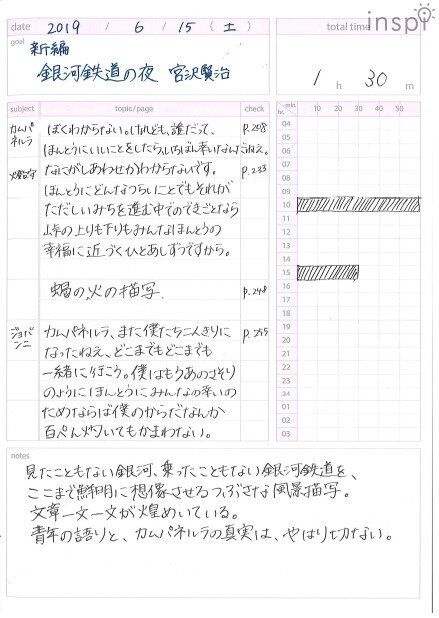 inspi
date 2019 / 6 / 15 (土)
total time
goal
新編
銀河鉄道の夜 宮沢賢治
1 h 30 m
subject topic/page check
min.
hr. 10 20 30 40 50
カムパネルラ
ぼくわからない。けれども、誰だって、
ほんとうにいいことをしたら、いちばん幸いなんだねえ。
p.208
燈台守
なにがしあわせかわからないです。
ほんとうにどんなつらいことでもそれが
ただしいみちを進む中でのできごとなら
峠の上りも下りもみんなほんとうの
幸福に近づくひとあしずつですから。
p.233
蝎の火の描写
p.248
ジョバンニ
カムパネルラ、また僕たち二人きりに
なったねえ、どこまでもどこまでも
一緒に行こう。僕はもうあのさそり
のようにほんとうにみんなの幸いの
ためならば僕のからだなんか
百ぺん灼いてもかまわない。
p.255
04
05
06
07
08
09
10
11
12
13
14
15
16
17
18
19
20
21
22
23
24
01
02
03
notes
見たこともない銀河、乗ったこともない銀河鉄道を、
ここまで鮮明に想像させるつぶさな風景描写。
文章一文一文が煌めいている。
青年の語りと、カムパネルラの真実は、やはり切ない。